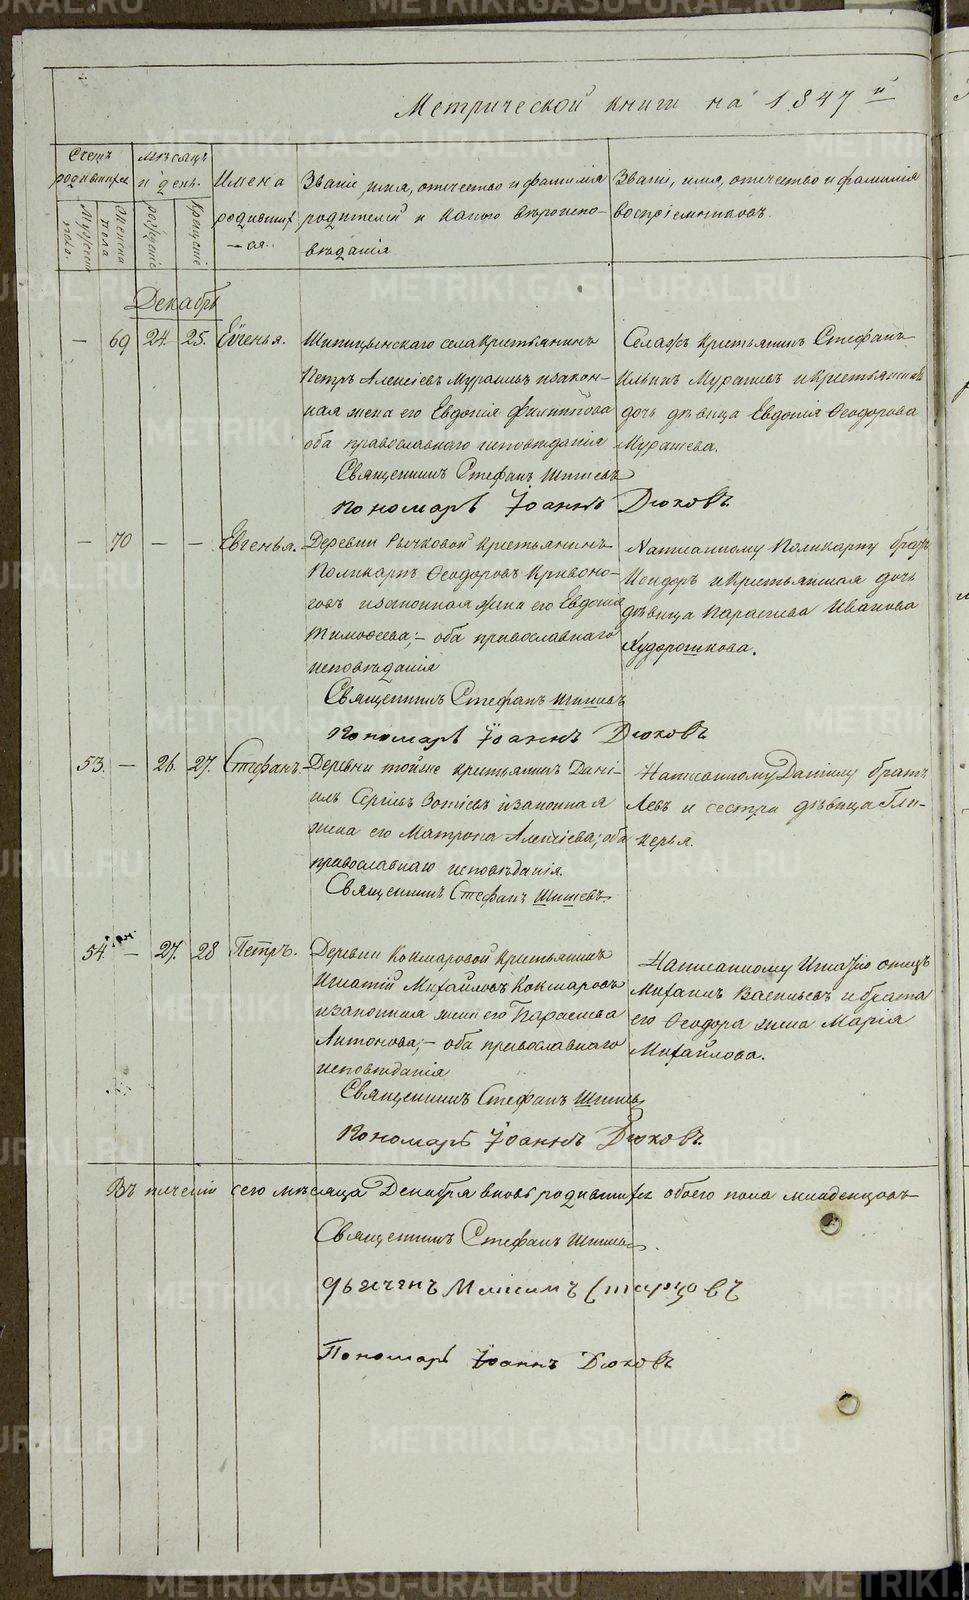 Метрической книги на 1847 й
Счетъ родившихся
Мѣсяцъ и день.
Имена родившихся.
Званіе, имя, отчество и фамилія родителей и какого вѣроисповѣданія
Званіе, имя, отчество и фамилія воспріемниковъ.
Мужеска пола.
Женска пола
рожденіе
Крещеніе
Декабрь
— 69 24. 25. Евгенья. Шипицынскаго села крестьянинъ
Петръ Алексѣевъ Мурашевъ и закон-
ная жена его Евдокія Филиппова
оба православнаго исповѣданія
Крестьянинъ Стефанъ
Ильинъ Мурашевъ и крестьянская
дочь дѣвица Евдокія Ѳеодорова
Мурашева.
Священникъ Стефанъ Шишевъ
Пономарь Іоаннъ Дюковъ.
— 70 — — Евгенья. Деревни Рычковой крестьянинъ
Поликарпъ Ѳеодоровъ Кривоно-
говъ и законная жена его Евдокія
Тимоѳеева; — оба православнаго
исповѣданія
Написанному Поликарпу братъ
Исидоръ и крестьянская дочь
дѣвица Параскева Иванова
Худорошкова.
Священникъ Стефанъ Шишевъ
Пономарь Іоаннъ Дюковъ
53. — 26. 27. Стефанъ. Деревни тойже крестьянинъ Дані-
илъ Сергіевъ Зотіевъ и законная
жена его Матрона Алексіева; оба
православнаго исповѣданія.
Написанному Даніилу братъ
Левъ и сестра дѣвица Гли-
керья.
Священникъ Стефанъ Шишевъ
54. — 27. 28 Петръ. Деревни Кокшаровой крестьянинъ
Игнатій Михайловъ Кокшаровъ
и законная жена его Параскева
Антонова; — оба православнаго
исповѣданія
Написанному Игнатію отецъ
Михаилъ Васильевъ и брата
его Ѳеодора жена Марія
Михайлова.
Священникъ Стефанъ Шишевъ
Пономарь Іоаннъ Дюковъ.
Въ теченіи сего мѣсяца Декабря вновь родившихся обоего пола младенцовъ
Священникъ Стефанъ Шишевъ.
Дьячекъ Старцовъ
Пономарь Іоаннъ Дюковъ
METRIKI.GASO-URAL.RU